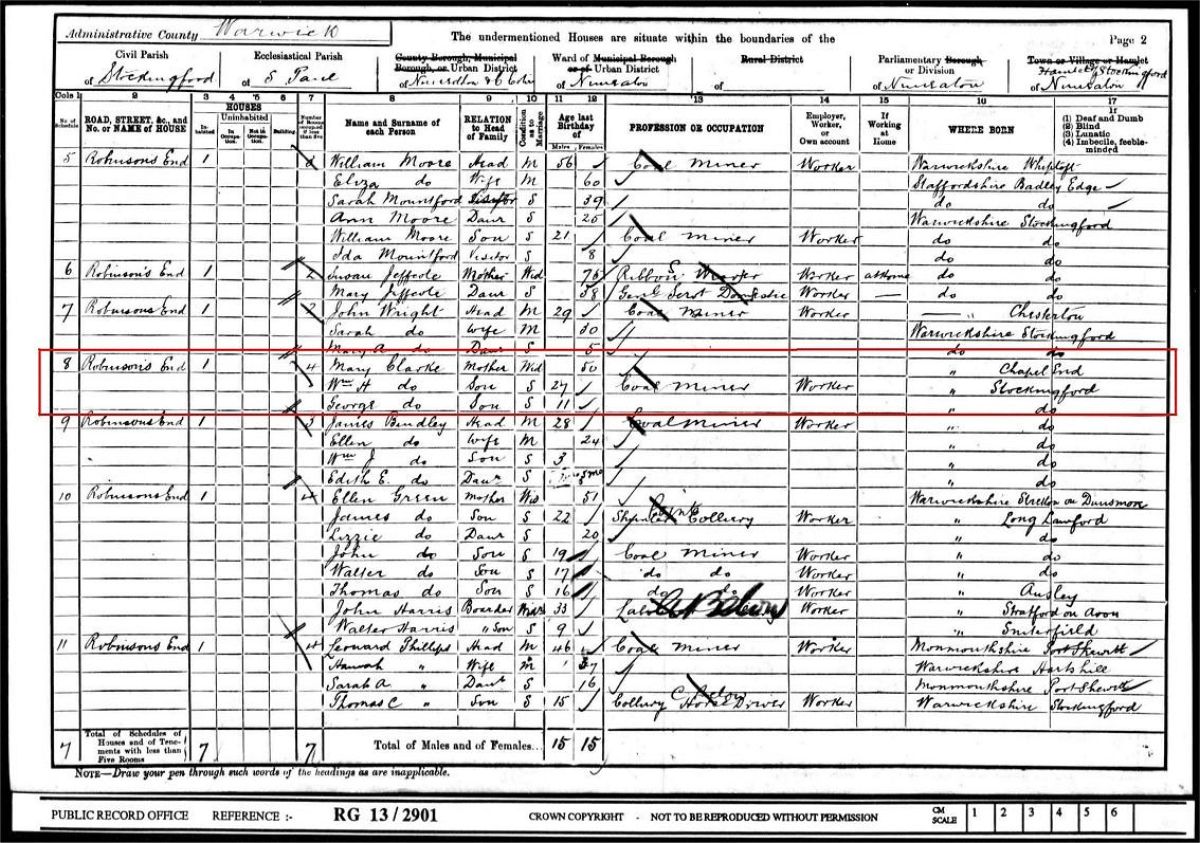 Administrative County Warwick
The undermentioned Houses are situate within the boundaries of the
Page 2
Civil Parish
of Stockingford
Ecclesiastical Parish
of S Paul
County Borough, Municipal
Borough, or Urban District
of Nuneaton & C
Ward of Municipal Borough
or of Urban District
of Nuneaton
Rural District
Parliamentary Borough
or Division
of Nuneaton
Town or Village or Hamlet
Hamlet of Stockingford
of Nuneaton
Cols 1 2 3 4 5 6 7 8 9 10 11 12 13 14 15 16 17
No. of Schedule
ROAD, STREET, &c., and No. or NAME of HOUSE
HOUSES
Inhabited
Uninhabited
In Occupation
Not in Occupation
Building
Number of Rooms occupied if less than five
Name and Surname of each Person
RELATION to Head of Family
Condition as to Marriage
Age last Birthday of
Males Females
PROFESSION OR OCCUPATION
Employer, Worker, or Own account
If Working at Home
WHERE BORN
If
(1) Deaf and Dumb
(2) Blind
(3) Lunatic
(4) Imbecile, feeble-minded
5 Robinsons End 1 William Moore Head M 56 Coal Miner Worker Warwickshire
Eliza do Wife M 60 Staffordshire Badley Edge
Sarah Mountford Visitor S 39 do do
Ann Moore Daur S 25 Warwickshire Stockingford
William Moore Son S 21 Coal Miner Worker do do
Ida Mountford Visitor S 8 do do
6 Robinsons End 1 2 Susan Jeffcote Mother Wid 76 Ribbon Weaver Worker at Home do do
Mary Jeffcote Daur S 38 Genl Servt Domestic Worker — do do
7 Robinsons End 1 2 John Wright Head M 29 Coal Miner Worker — " Chesterton
Sarah do Wife M 30 Warwickshire Stockingford
Mary A do Daur S 5 do do
8 Robinsons End 1 4 Mary Clarke Mother Wid 50 " Chapel End
Wm H do Son S 27 Coal Miner Worker " Stockingford
George do Son S 11 " do
9 Robinsons End 1 3 James Bindley Head M 28 Coal Miner Worker " do
Ellen do Wife M 24 " do
Wm J do Son S 3 " do
Edith E. do Daur S " do
10 Robinsons End 1 4 Ellen Green Mother Wid 51 Warwickshire Stretton on Dunsmore
James do Son S 22 Colliery Worker " Long Lawford
Lizzie do Daur S 20 " do
John do Son S 19 Coal Miner Worker " do
Walter do Son S 17 do do Worker " do
Thomas do Son S 16 do Worker " Ansley
John Harris Boarder 33 Worker " Stratford on Avon
Walter Harris " Son S 9 " Snitterfield
11 Robinsons End 1 4 Leonard Phillips Head M 46 Coal Miner Worker Monmouthshire Port Skewitt
Hannah " Wife M 37 Warwickshire Hartshill
Sarah A " Daur S 16 Monmouthshire Port Skewitt
Thomas C " Son S 15 Colliery Horse Driver Worker Warwickshire Stockingford
7 Total of Schedules of Houses and of Tenements with less than Five Rooms 7 7 Total of Males and of Females... 15 15
NOTE—Draw your pen through such words of the headings as are inapplicable.
PUBLIC RECORD OFFICE REFERENCE :- RG 13/2901 CROWN COPYRIGHT - NOT TO BE REPRODUCED WITHOUT PERMISSION CM SCALE 1 2 3 4 5 6